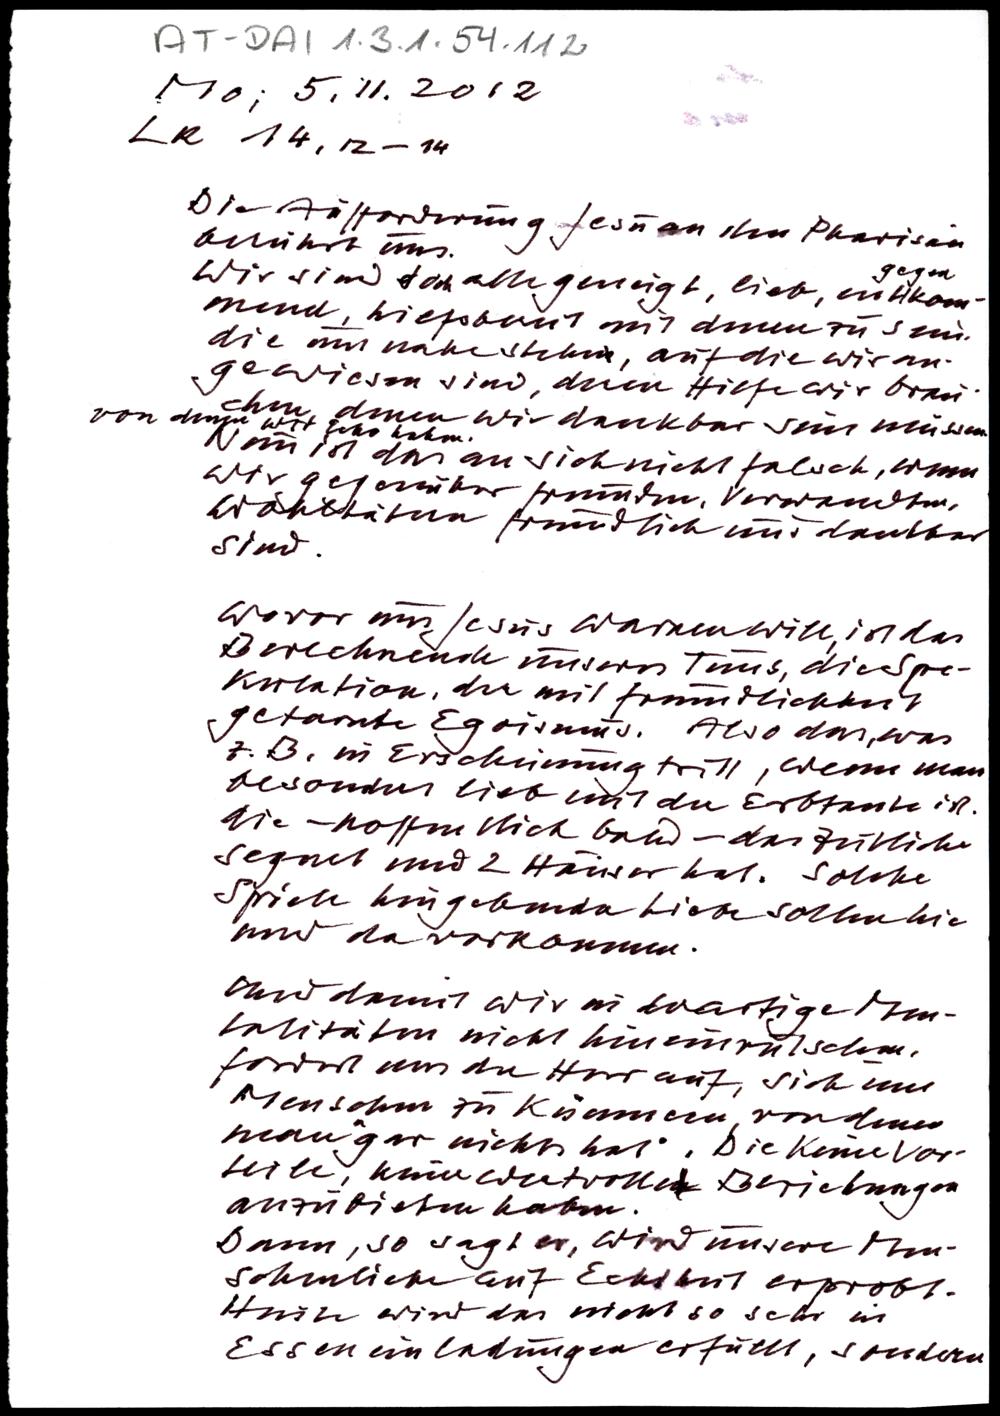 AT-DAI 1.3.1.54.112
Mo; 5.11.2012
LK 14, 12–14
Die Aufforderung Jesu an den Pharisäer
berührt uns.
Wir sind doch alle geneigt, lieb, entgegenkom-
mend, hilfsbereit mit denen zu sein,
die uns nahe stehen, auf die wir an-
gewiesen sind, deren Hilfe wir brau-
chen, denen wir dankbar sein müssen
von denen wir gehabt haben.
Nun ist das an sich nicht falsch, wenn
wir gegenüber Freunden, Verwandten,
Wohltätern freundlich und dankbar
sind.
Wovor uns Jesus warnen will, ist das
Berechnende unseres Tuns, die Spe-
kulation, der mit Freundlichkeit
getarnte Egoismus. Also das, was
z.B. in Erscheinung tritt, wenn man
besonders lieb mit der Erbtante ist,
die – hoffentlich bald – das Zeitliche
segnet und 2 Häuser hat. Solche
Spiele hingebender Liebe sollen hie
und da vorkommen.
Und damit wir in derartige Men-
talitäten nicht hineinrutschen,
fordert uns der Herr auf, sich um
Menschen zu kümmern, von denen
man "gar nichts hat". Die keine Vor-
teile, keine wertvollen Beziehungen
anzubieten haben.
Dann, so sagt er, wird unsere Men-
schenliebe auf Echtheit erprobt.
Heute wird das nicht so sehr in
Esseneinladungen erfüllt, sondern